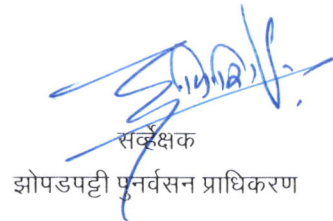 सर्व्हेक्षक
झोपडपट्टी पुनर्वसन प्राधिकरण